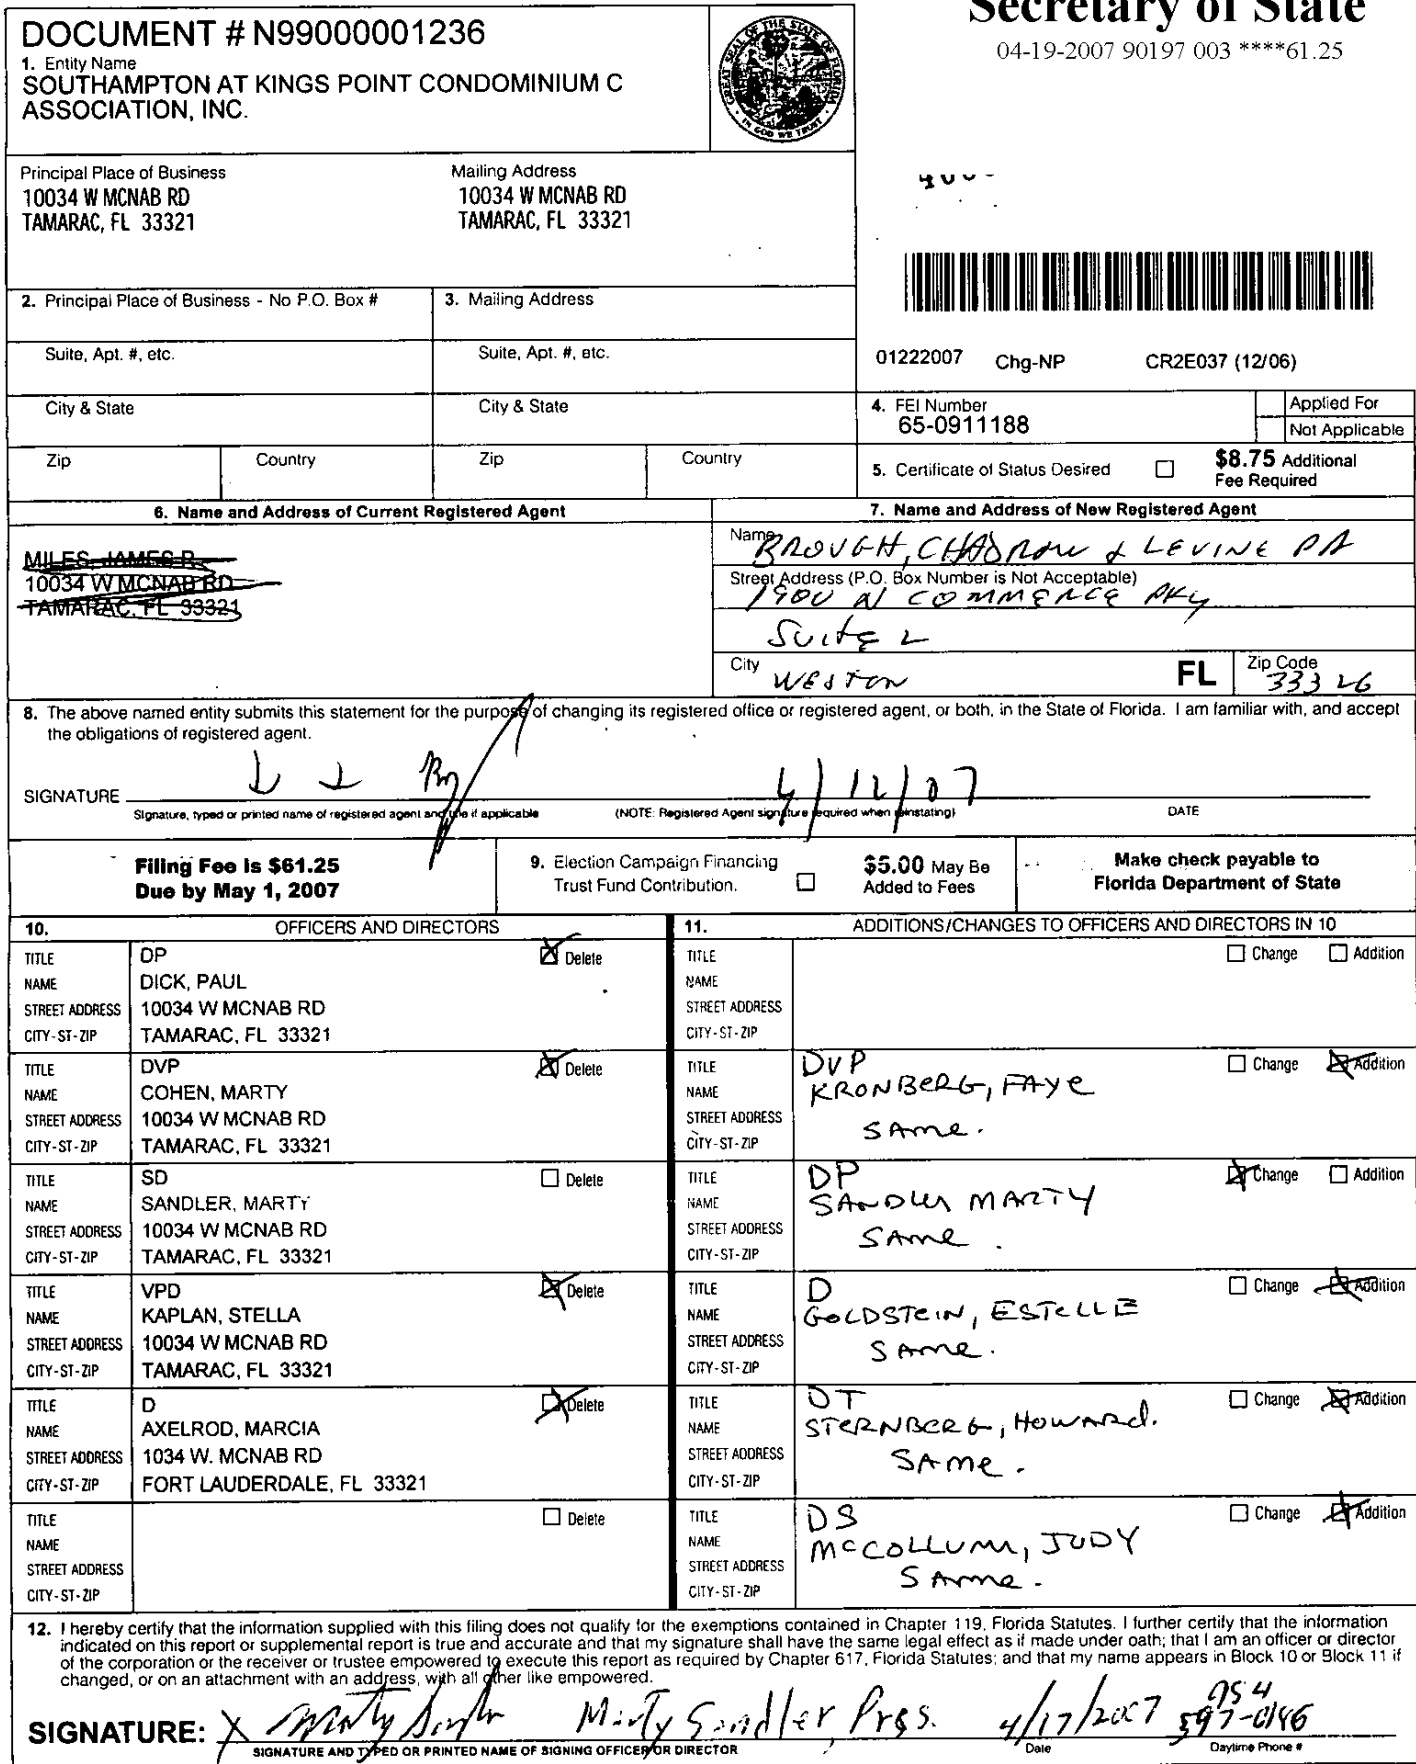 Secretary of State
04-19-2007 90197 003 ****61.25
DOCUMENT # N99000001236
1. Entity Name
SOUTHAMPTON AT KINGS POINT CONDOMINIUM C
ASSOCIATION, INC.
GREAT SEAL OF THE STATE OF FLORIDA
IN GOD WE TRUST
Principal Place of Business
10034 W MCNAB RD
TAMARAC, FL 33321
Mailing Address
10034 W MCNAB RD
TAMARAC, FL 33321
2. Principal Place of Business - No P.O. Box #
3. Mailing Address
Suite, Apt. #, etc.
Suite, Apt. #, etc.
City & State
City & State
Zip Country
Zip Country
01222007 Chg-NP CR2E037 (12/06)
4. FEI Number
65-0911188
Applied For
Not Applicable
5. Certificate of Status Desired
$8.75 Additional
Fee Required
6. Name and Address of Current Registered Agent
MILES, JAMES R
10034 W MCNAB RD
TAMARAC, FL 33321
7. Name and Address of New Registered Agent
Name
BROUGH, CHADROW & LEVINE PA
Street Address (P.O. Box Number is Not Acceptable)
1900 N COMMERCE PKY
SUITE 2
City WESTON FL Zip Code 33326
8. The above named entity submits this statement for the purpose of changing its registered office or registered agent, or both, in the State of Florida. I am familiar with, and accept
the obligations of registered agent.
SIGNATURE 4/12/07
Signature, typed or printed name of registered agent and title if applicable (NOTE: Registered Agent signature required when reinstating) DATE
Filing Fee is $61.25
Due by May 1, 2007
9. Election Campaign Financing
Trust Fund Contribution.
$5.00 May Be
Added to Fees
Make check payable to
Florida Department of State
10. OFFICERS AND DIRECTORS
TITLE DP Delete
NAME DICK, PAUL
STREET ADDRESS 10034 W MCNAB RD
CITY-ST-ZIP TAMARAC, FL 33321
TITLE DVP Delete
NAME COHEN, MARTY
STREET ADDRESS 10034 W MCNAB RD
CITY-ST-ZIP TAMARAC, FL 33321
TITLE SD Delete
NAME SANDLER, MARTY
STREET ADDRESS 10034 W MCNAB RD
CITY-ST-ZIP TAMARAC, FL 33321
TITLE VPD Delete
NAME KAPLAN, STELLA
STREET ADDRESS 10034 W MCNAB RD
CITY-ST-ZIP TAMARAC, FL 33321
TITLE D Delete
NAME AXELROD, MARCIA
STREET ADDRESS 1034 W. MCNAB RD
CITY-ST-ZIP FORT LAUDERDALE, FL 33321
TITLE Delete
NAME
STREET ADDRESS
CITY-ST-ZIP
11. ADDITIONS/CHANGES TO OFFICERS AND DIRECTORS IN 10
TITLE Change Addition
NAME
STREET ADDRESS
CITY-ST-ZIP
TITLE DVP Change Addition
NAME KRONBERG, FAYE
STREET ADDRESS SAME.
CITY-ST-ZIP
TITLE DP Change Addition
NAME SANDLER MARTY
STREET ADDRESS SAME.
CITY-ST-ZIP
TITLE D Change Addition
NAME GOLDSTEIN, ESTELLE
STREET ADDRESS SAME.
CITY-ST-ZIP
TITLE DT Change Addition
NAME STERNBERG, HOWARD.
STREET ADDRESS SAME.
CITY-ST-ZIP
TITLE DS Change Addition
NAME MCCOLLUM, JUDY
STREET ADDRESS SAME.
CITY-ST-ZIP
12. I hereby certify that the information supplied with this filing does not qualify for the exemptions contained in Chapter 119, Florida Statutes. I further certify that the information
indicated on this report or supplemental report is true and accurate and that my signature shall have the same legal effect as if made under oath; that I am an officer or director
of the corporation or the receiver or trustee empowered to execute this report as required by Chapter 617, Florida Statutes; and that my name appears in Block 10 or Block 11 if
changed, or on an attachment with an address, with all other like empowered.
SIGNATURE: X Marty Sandler Marty Sandler, Pres. 4/17/2007 954 597-0146
SIGNATURE AND TYPED OR PRINTED NAME OF SIGNING OFFICER OR DIRECTOR Date Daytime Phone #